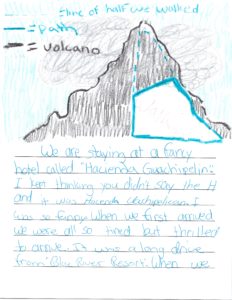 = line of half we walked
= path
= volcano
We are staying at a fancy
hotel called "Hacienda Guachipelin".
I kept thinking you didn't say the H
and it was
was so funny. When we first arrived
we were all so tired but thrilled
to arrive. It was a long drive
from "Blue River Resort". When we